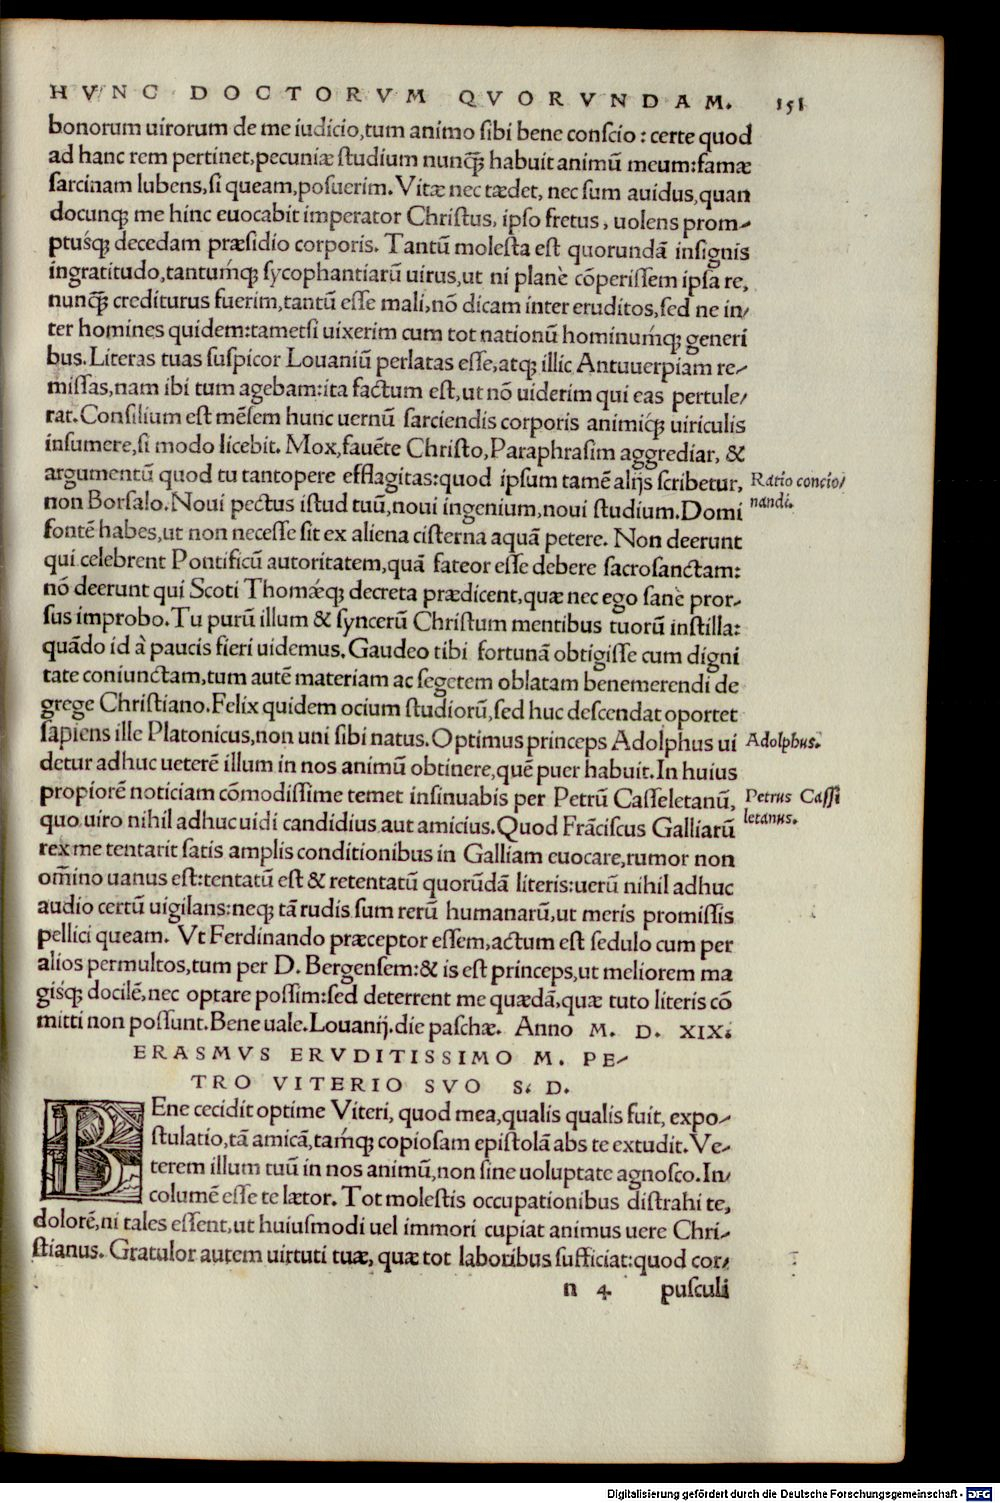 HVNC DOCTORVM QVORVNDAM. 151
bonorum uirorum de me iudicio,tum animo sibi bene conscio: certe quod
ad hanc rem pertinet,pecuniæ studium nunq̃ꝫ habuit animũ meum:famæ
sarcinam lubens,si queam,posuerim. Vitæ nec tædet, nec sum auidus,quan
docunqꝫ me hinc euocabit imperator Christus, ipso fretus, uolens prom-
ptusqꝫ́ decedam præsidio corporis. Tantũ molesta est quorundã insignis
ingratitudo,tantumqꝫ́ sycophantiarũ uirus,ut ni planè cõperissem ipsa re,
nunq̃ꝫ crediturus fuerim,tantũ esse mali,nõ dicam inter eruditos,sed ne in/
ter homines quidem:tametsi uixerim cum tot nationũ hominumqꝫ́ generi
bus. Literas tuas suspicor Louaniũ perlatas esse,atqꝫ illic Antuuerpiam re-
missas,nam ibi tum agebam:ita factum est,ut nõ uiderim qui eas pertule/
rat. Consilium est mẽsem hunc uernũ sarciendis corporis animiqꝫ́ uiriculis
insumere,si modo licebit. Mox,fauẽte Christo,Paraphrasim aggrediar, &
argumentũ quod tu tantopere efflagitas:quod ipsum tamẽ alijs scribetur,
Ratio concio/
nandi.
non Borsalo. Noui pectus istud tuũ,noui ingenium,noui studium. Domi
fontẽ habes,ut non necesse sit ex aliena cisterna aquã petere. Non deerunt
qui celebrent Pontificũ autoritatem,quã fateor esse debere sacrosanctam:
nõ deerunt qui Scoti Thomæqꝫ́ decreta prædicent,quæ nec ego sanè pror-
sus improbo. Tu purũ illum & syncerũ Christum mentibus tuorũ instilla:
quãdo id à paucis fieri uidemus. Gaudeo tibi fortunã obtigisse cum digni
tate coniunctam,tum autẽ materiam ac segetem oblatam benemerendi de
grege Christiano. Felix quidem ocium studiorũ,sed huc descendat oportet
sapiens ille Platonicus,non uni sibi natus. Optimus princeps Adolphus ui
Adolphus.
detur adhuc ueterẽ illum in nos animũ obtinere,quẽ puer habuit. In huius
propiorẽ noticiam cõmodissime temet insinuabis per Petrũ Casseletanũ,
Petrus Cassi
letanus.
quo uiro nihil adhuc uidi candidius aut amicius. Quod Frãciscus Galliarũ
rex me tentarit satis amplis conditionibus in Galliam euocare,rumor non
om̃ino uanus est:tentatũ est & retentatũ quorũdã literis:uerũ nihil adhuc
audio certũ uigilans:neqꝫ tã rudis sum rerũ humanarũ,ut meris promissis
pellici queam. Vt Ferdinando præceptor essem,actum est sedulo cum per
alios permultos,tum per D. Bergensem:& is est princeps,ut meliorem ma
gisqꝫ́ docilẽ,nec optare possim:sed deterrent me quædã,quæ tuto literis cõ
mitti non possunt. Bene uale. Louanij. die paschæ. Anno M. D. XIX.
ERASMVS ERVDITISSIMO M. PE-
TRO VITERIO SVO S. D.
BEne cecidit optime Viteri, quod mea,qualis qualis fuit, expo-
stulatio,tã amicã,tamqꝫ́ copiosam epistolã abs te extudit. Ve-
terem illum tuũ in nos animũ,non sine uoluptate agnosco. In/
columẽ esse te lætor. Tot molestis occupationibus distrahi te,
dolorẽ,ni tales essent,ut huiusmodi uel immori cupiat animus uere Chri-
stianus. Gratulor autem uirtuti tuæ, quæ tot laboribus sufficiat:quod cor-
n 4 pusculi
Digitalisierung gefördert durch die Deutsche Forschungsgemeinschaft - DFG